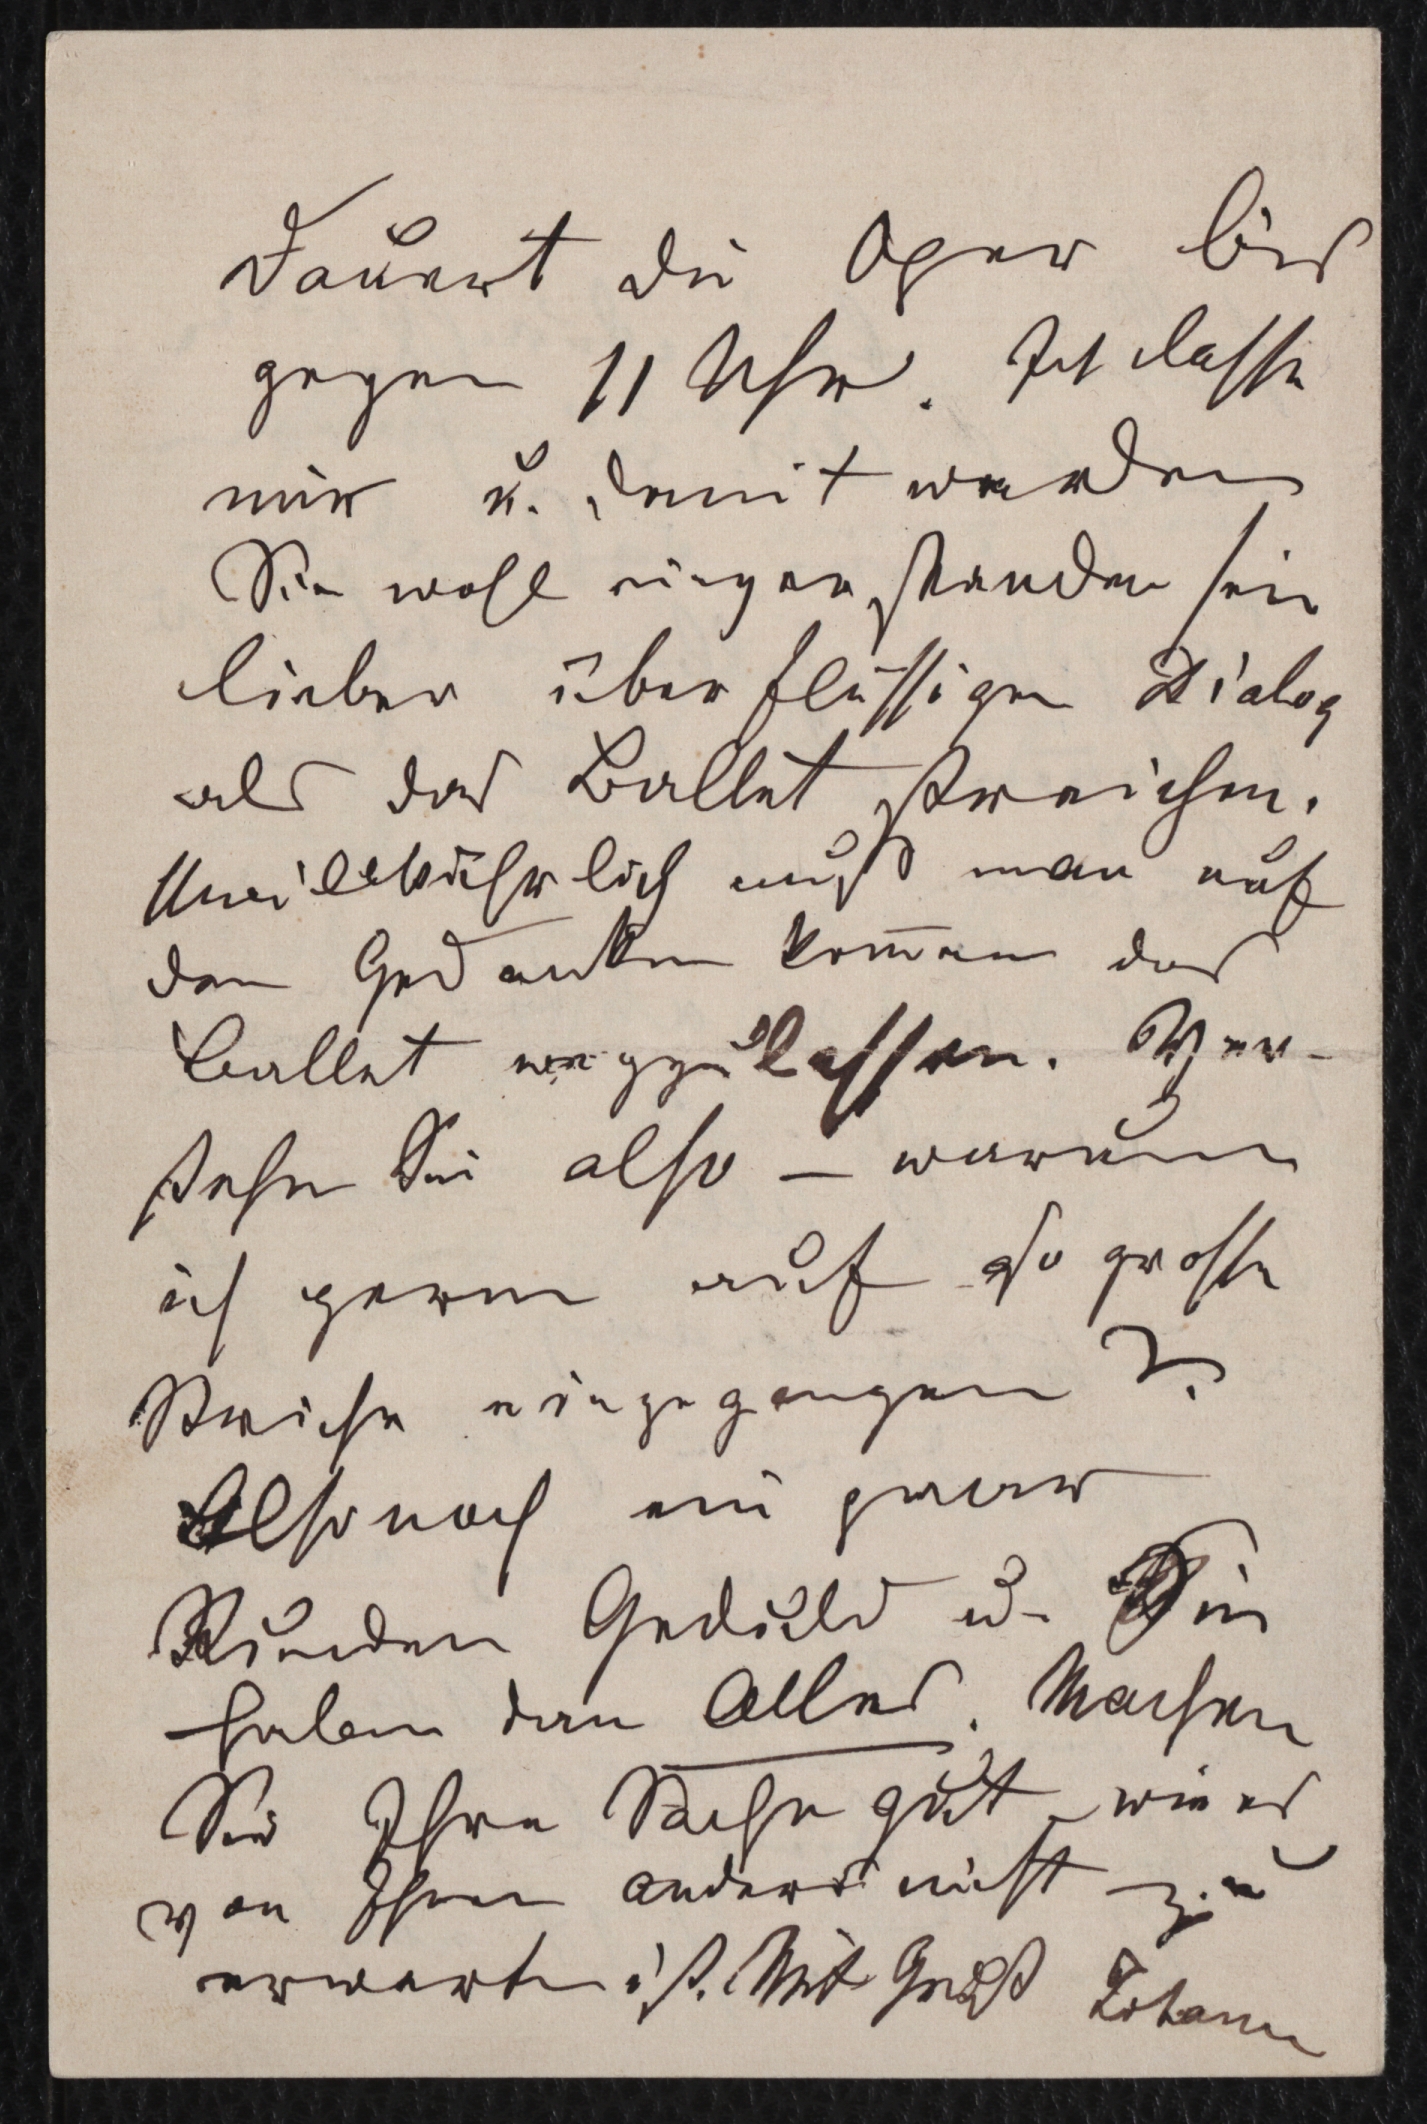 Dauert die Oper bis
gegen 11 Uhr. Ich lasse
mir u. damit werden
Sie wohl einverstanden sein
lieber überflüssigen Dialog
als das Ballet streichen.
Unwillkührlich muß man auf
den Gedanken kom̄en das
Ballet wegzulassen. Ver-
stehn Sie also – warum
ich gerne auf so grosse
Striche eingegangen?
Also noch ein paar
Stunden Geduld u. Sie
haben dan Alles. Machen
Sie Ihre Sache gut, wie es
von Ihnen anders nicht zu
erwarten ist. Mit Gruß Johann